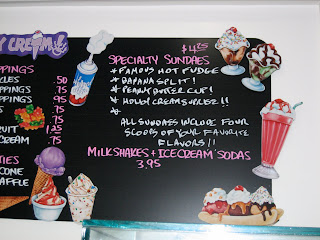 Y CREAM!
PPINGS
CLES .50
PPINGS .75
PPINGS .95
S .75
.75
RUIT 1.25
CREAM .75
TIES
CONE
AFFLE
$4.25
SPECIALTY SUNDAES
* FAMOUS HOT FUDGE
* BANANA SPLIT!
* PEANUT BUTTER CUP!
* HOLLY CREAM SUPREZ!!
*
ALL SUNDAES INCLUDE FOUR
SCOOPS OF YOUR FAVORITE
FLAVORS!!
MILKSHAKES + ICE CREAM SODAS
3.95